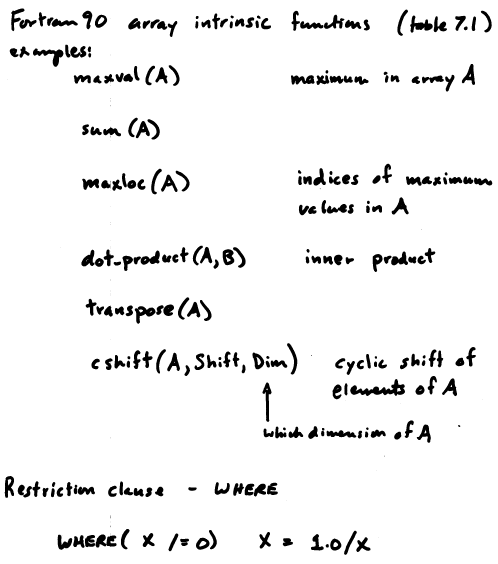 Fortran 90 array intrinsic functions (table 7.1)
examples:
maxval (A) maximum in array A
sum (A)
maxloc (A) indices of maximum
values in A
dot-product (A, B) inner product
transpose (A)
cshift (A, Shift, Dim) cyclic shift of
elements of A
which dimension of A
Restriction clause - WHERE
WHERE ( X /= 0) X = 1.0/X